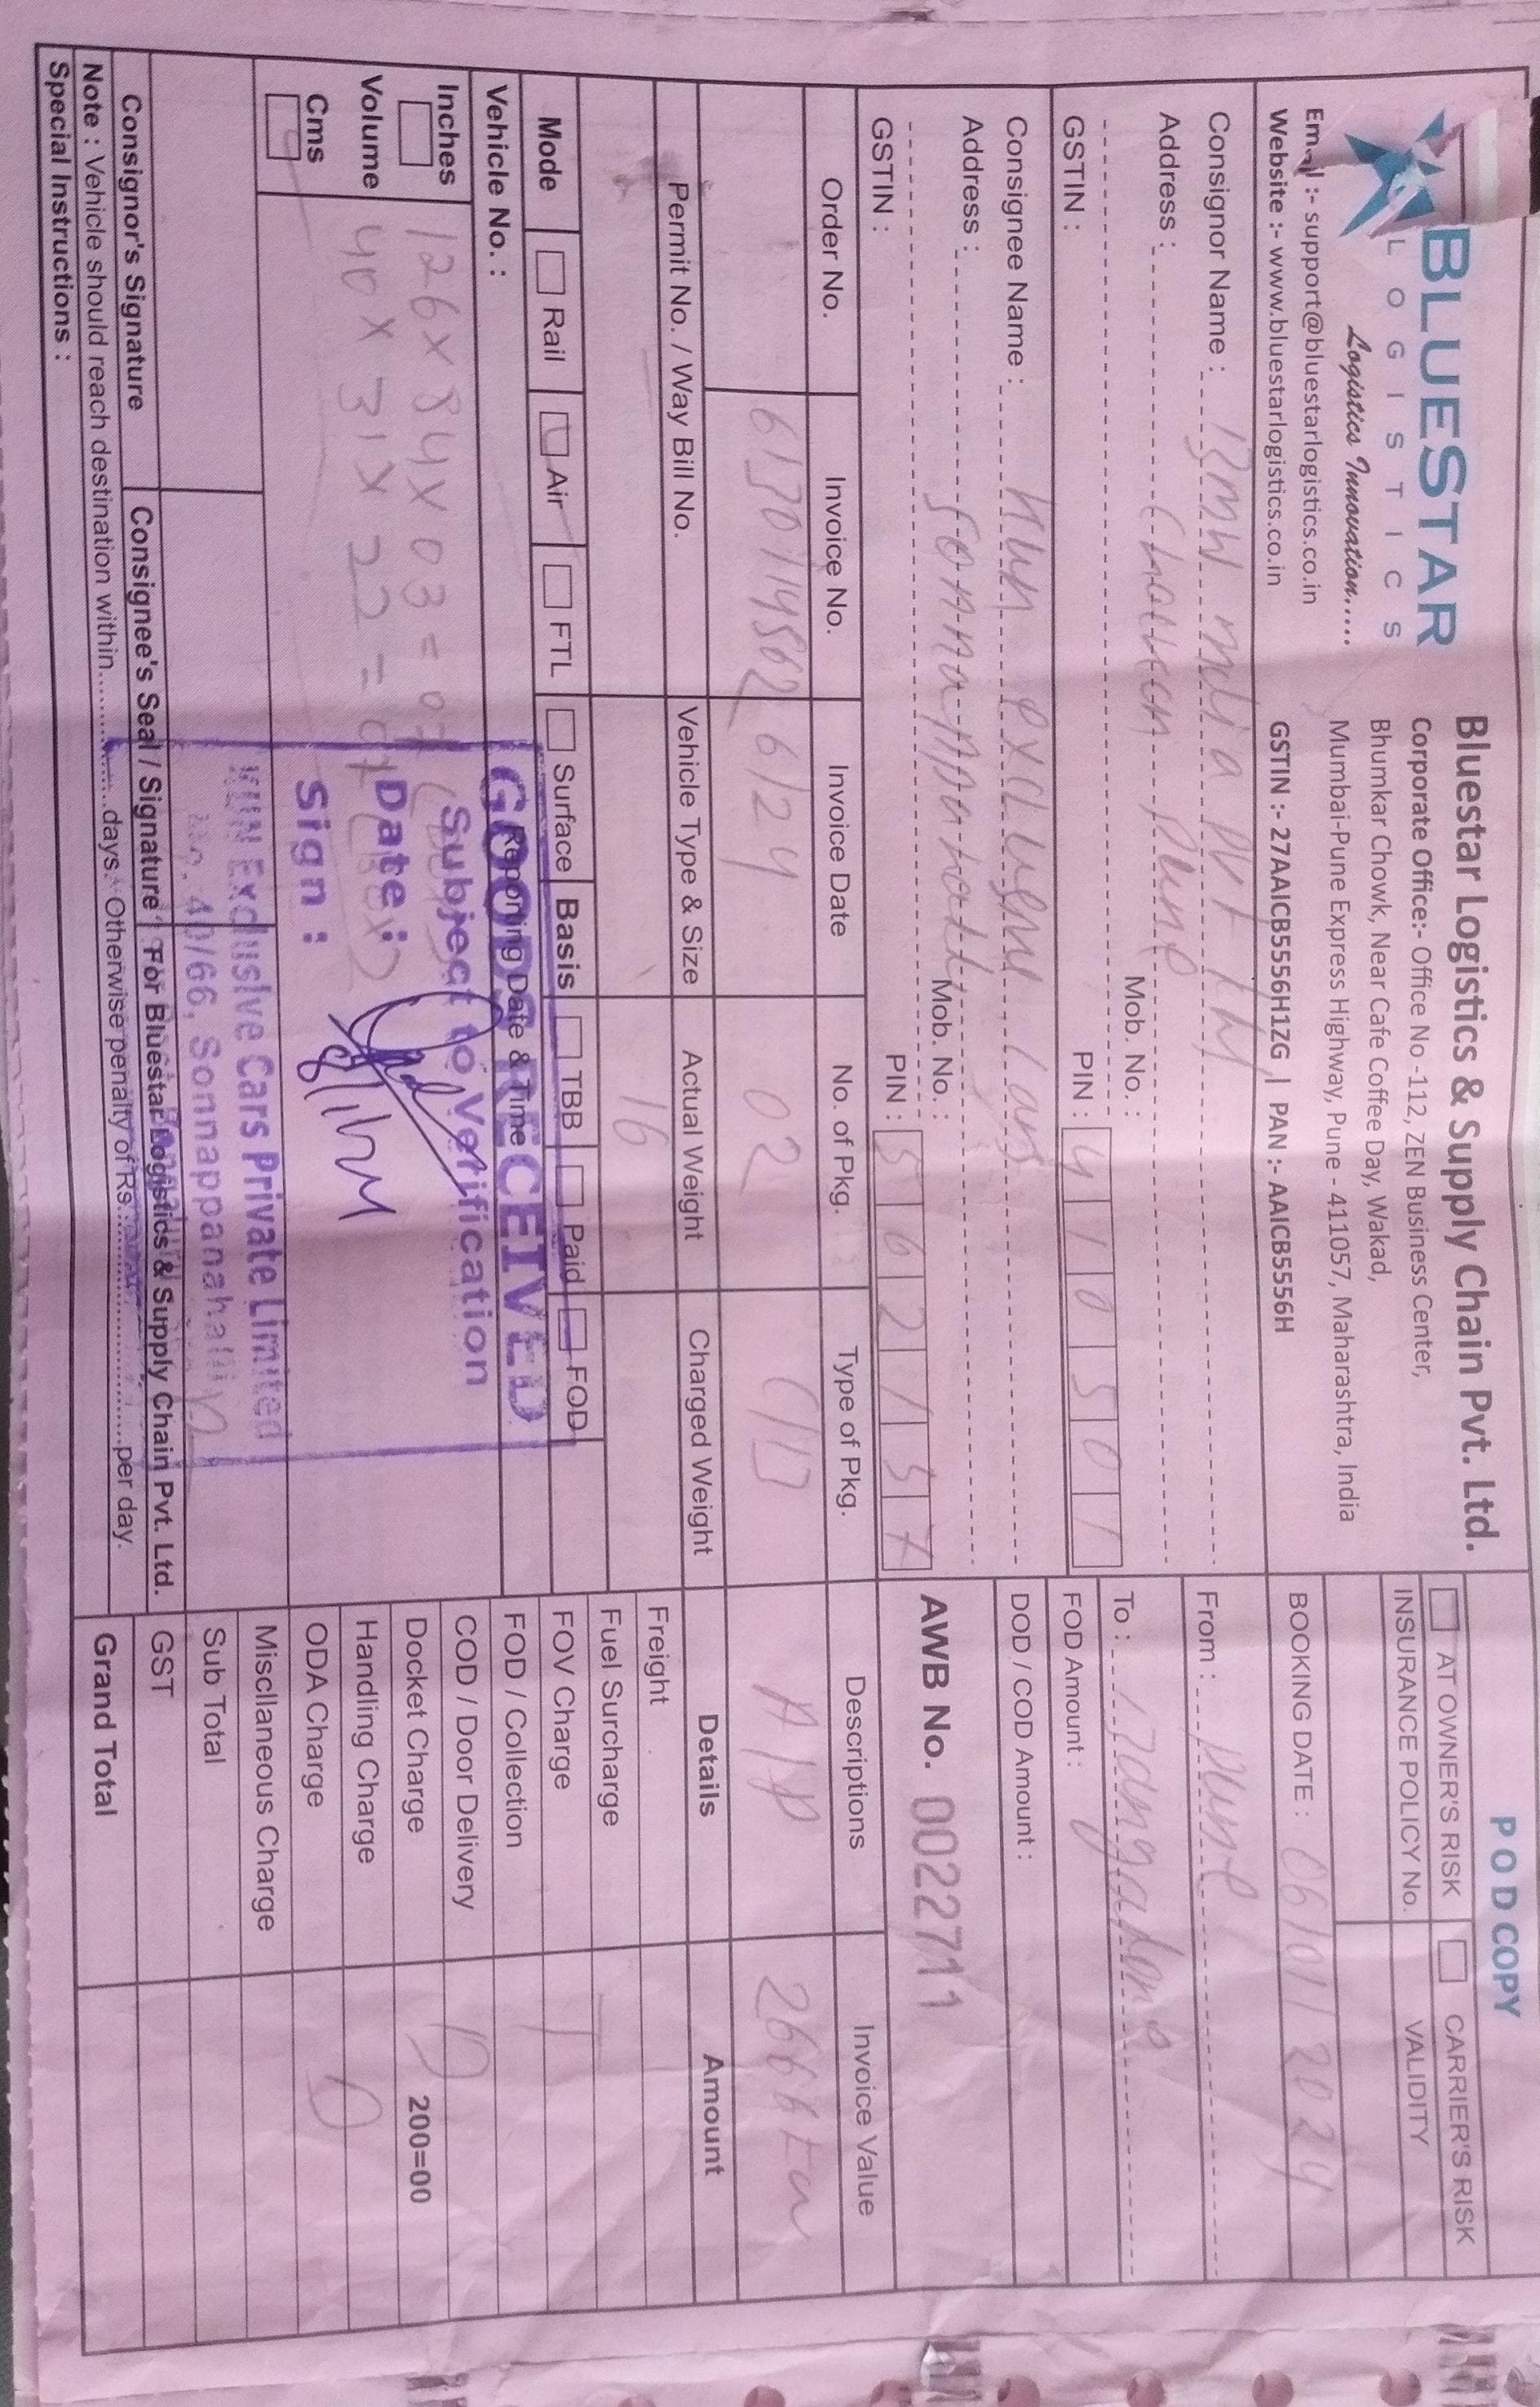 BLUESTAR
LOGISTICS
Logistics Innovation.....
Email :- support@bluestarlogistics.co.in
Website :- www.bluestarlogistics.co.in
Bluestar Logistics & Supply Chain Pvt. Ltd.
Corporate Office:- Office No -112, ZEN Business Center,
Bhumkar Chowk, Near Cafe Coffee Day, Wakad,
Mumbai-Pune Express Highway, Pune - 411057, Maharashtra, India
GSTIN :- 27AAICB5556H1ZG | PAN :- AAICB5556H
POD COPY
AT OWNER'S RISK CARRIER'S RISK
INSURANCE POLICY No. VALIDITY
BOOKING DATE : 06/01/2024
Consignor Name : BMW India Pvt Ltd
Address : Pune
Mob. No. :
GSTIN : PIN : 410501
From : Pune
To : Bangalore
FOD Amount :
DOD / COD Amount :
Consignee Name : Kun exclusive cars
Address :
Mob. No. :
GSTIN : PIN : 562157
AWB No. 0022711
Order No. Invoice No. Invoice Date No. of Pkg. Type of Pkg. Descriptions Invoice Value
6130714562 6/24 02 A/P 2666
Permit No. / Way Bill No. Vehicle Type & Size Actual Weight Charged Weight
16
Mode Rail Air FTL Surface Basis TBB Paid FOD
Vehicle No. : Reporting Date & Time
Inches
Volume
Cms
126 x 84 x 03 =
40 x 31 x 22 = 01 (Box)
GOODS RECEIVED
Subject to Verification
Date :
8/1/24
Sign :
KUN Exclusive Cars Private Limited
No. 40/66, Sonnappanahalli
Details Amount
Freight
Fuel Surcharge
FOV Charge
FOD / Collection
COD / Door Delivery
Docket Charge 200=00
Handling Charge
ODA Charge
Miscllaneous Charge
Sub Total
GST
Grand Total
Consignor's Signature
Consignee's Seal / Signature
For Bluestar Logistics & Supply Chain Pvt. Ltd.
Note : Vehicle should reach destination within..............days. Otherwise penalty of Rs..............................per day.
Special Instructions :